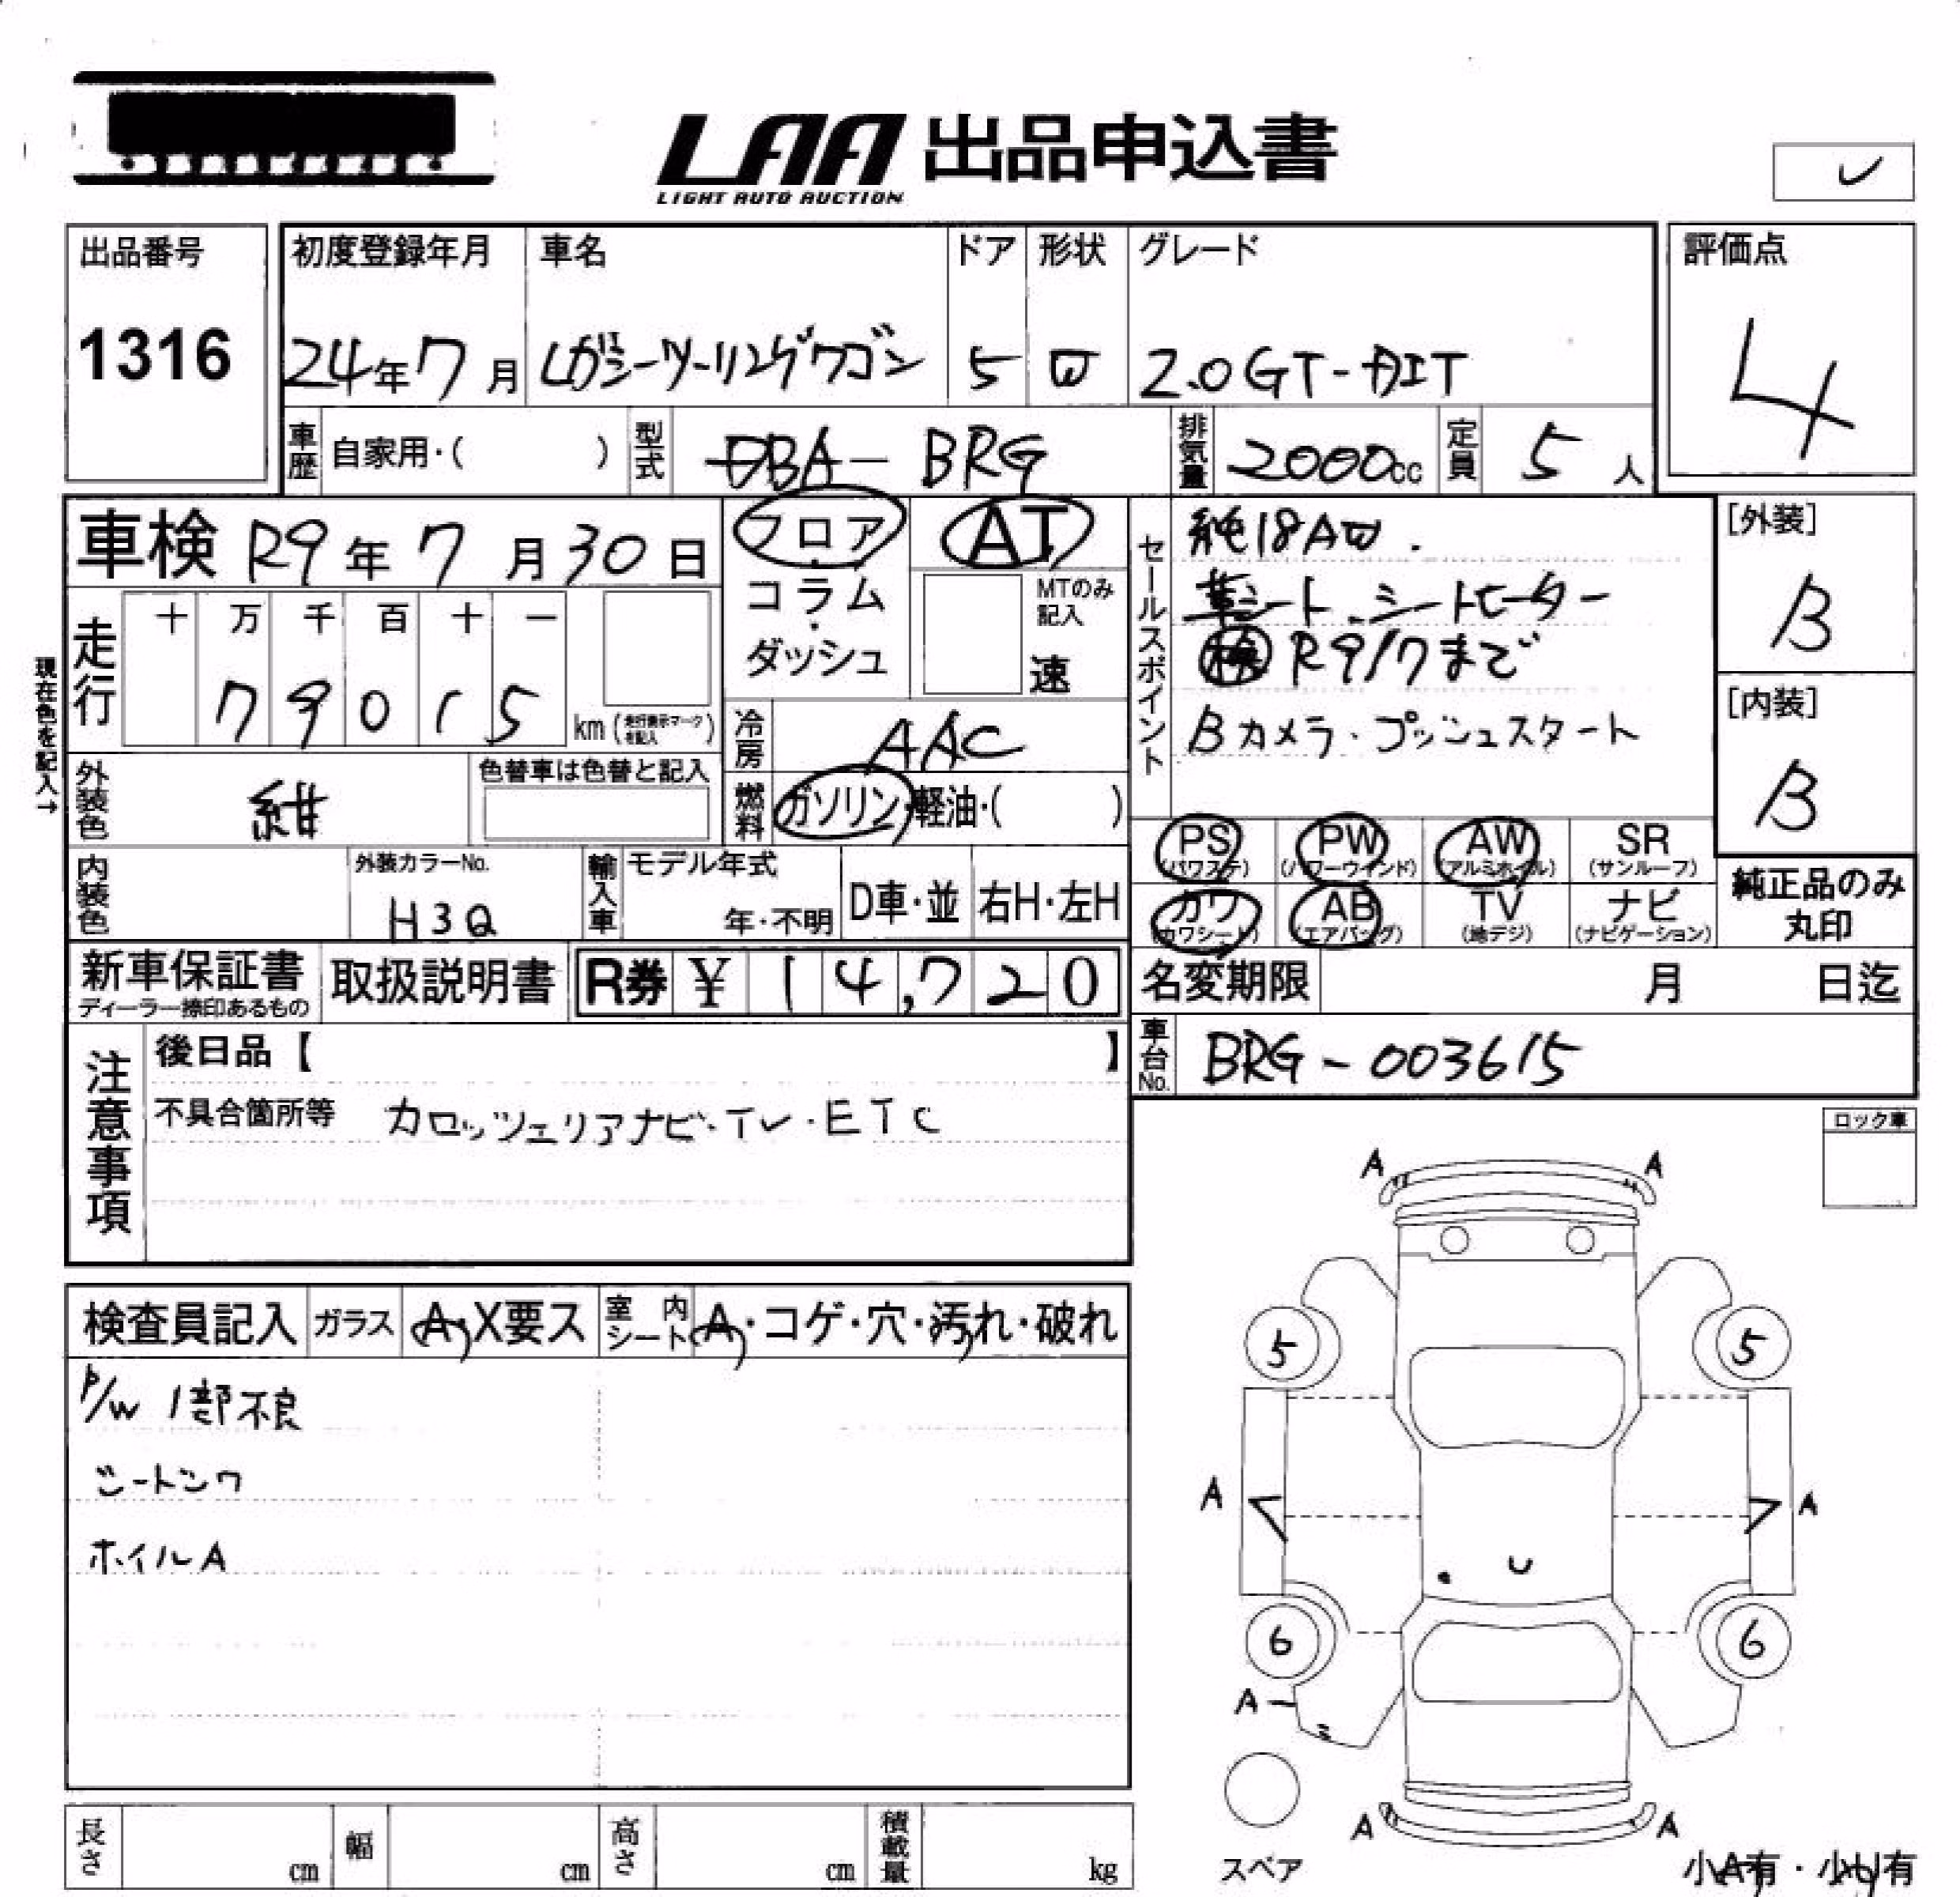 LAA 出品申込書
LIGHT AUTO AUCTION
出品番号
1316
初度登録年月
24年7月
車名
レガシーツーリングワゴン
ドア
5
形状
W
グレード
2.0GT-DIT
評価点
4
車歴 自家用・( )
型式 DBA-BRG
排気量 2000cc
定員 5人
車検 R9年7月30日
フロア・コラム・ダッシュ
AT
MTのみ記入
速
セールスポイント
純18AW.
革シート.シートヒーター
検R9/7まで
Bカメラ・プッシュスタート
[外装]
B
[内装]
B
現在色を記入→
走行
十 万 千 百 十 一
79015
km(走行表示マークを記入)
冷房 AAC
外装色 紺
色替車は色替と記入
燃料 ガソリン・軽油・( )
PS (パワステ)
PW (パワーウインド)
AW (アルミホイル)
SR (サンルーフ)
カワ (カワシート)
AB (エアバッグ)
TV (地デジ)
ナビ (ナビゲーション)
純正品のみ丸印
内装色
外装カラーNo.
H3Q
輸入車
モデル年式
年・不明
D車・並
右H・左H
新車保証書
ディーラー捺印あるもの
取扱説明書
R券 ¥14,720
名変期限 月 日迄
車台No. BRG-003615
注意事項
後日品【 】
不具合箇所等 カロッツェリアナビ・TV・ETC
ロック車
検査員記入
ガラス A・X要ス
室内シート A・コゲ・穴・汚れ・破れ
P/W 1部不良
シートシワ
ホイルA
A A
5 5
A A
U
6 6
A
A A
スペア
小A有・小U有
長さ cm
幅 cm
高さ cm
積載量 kg